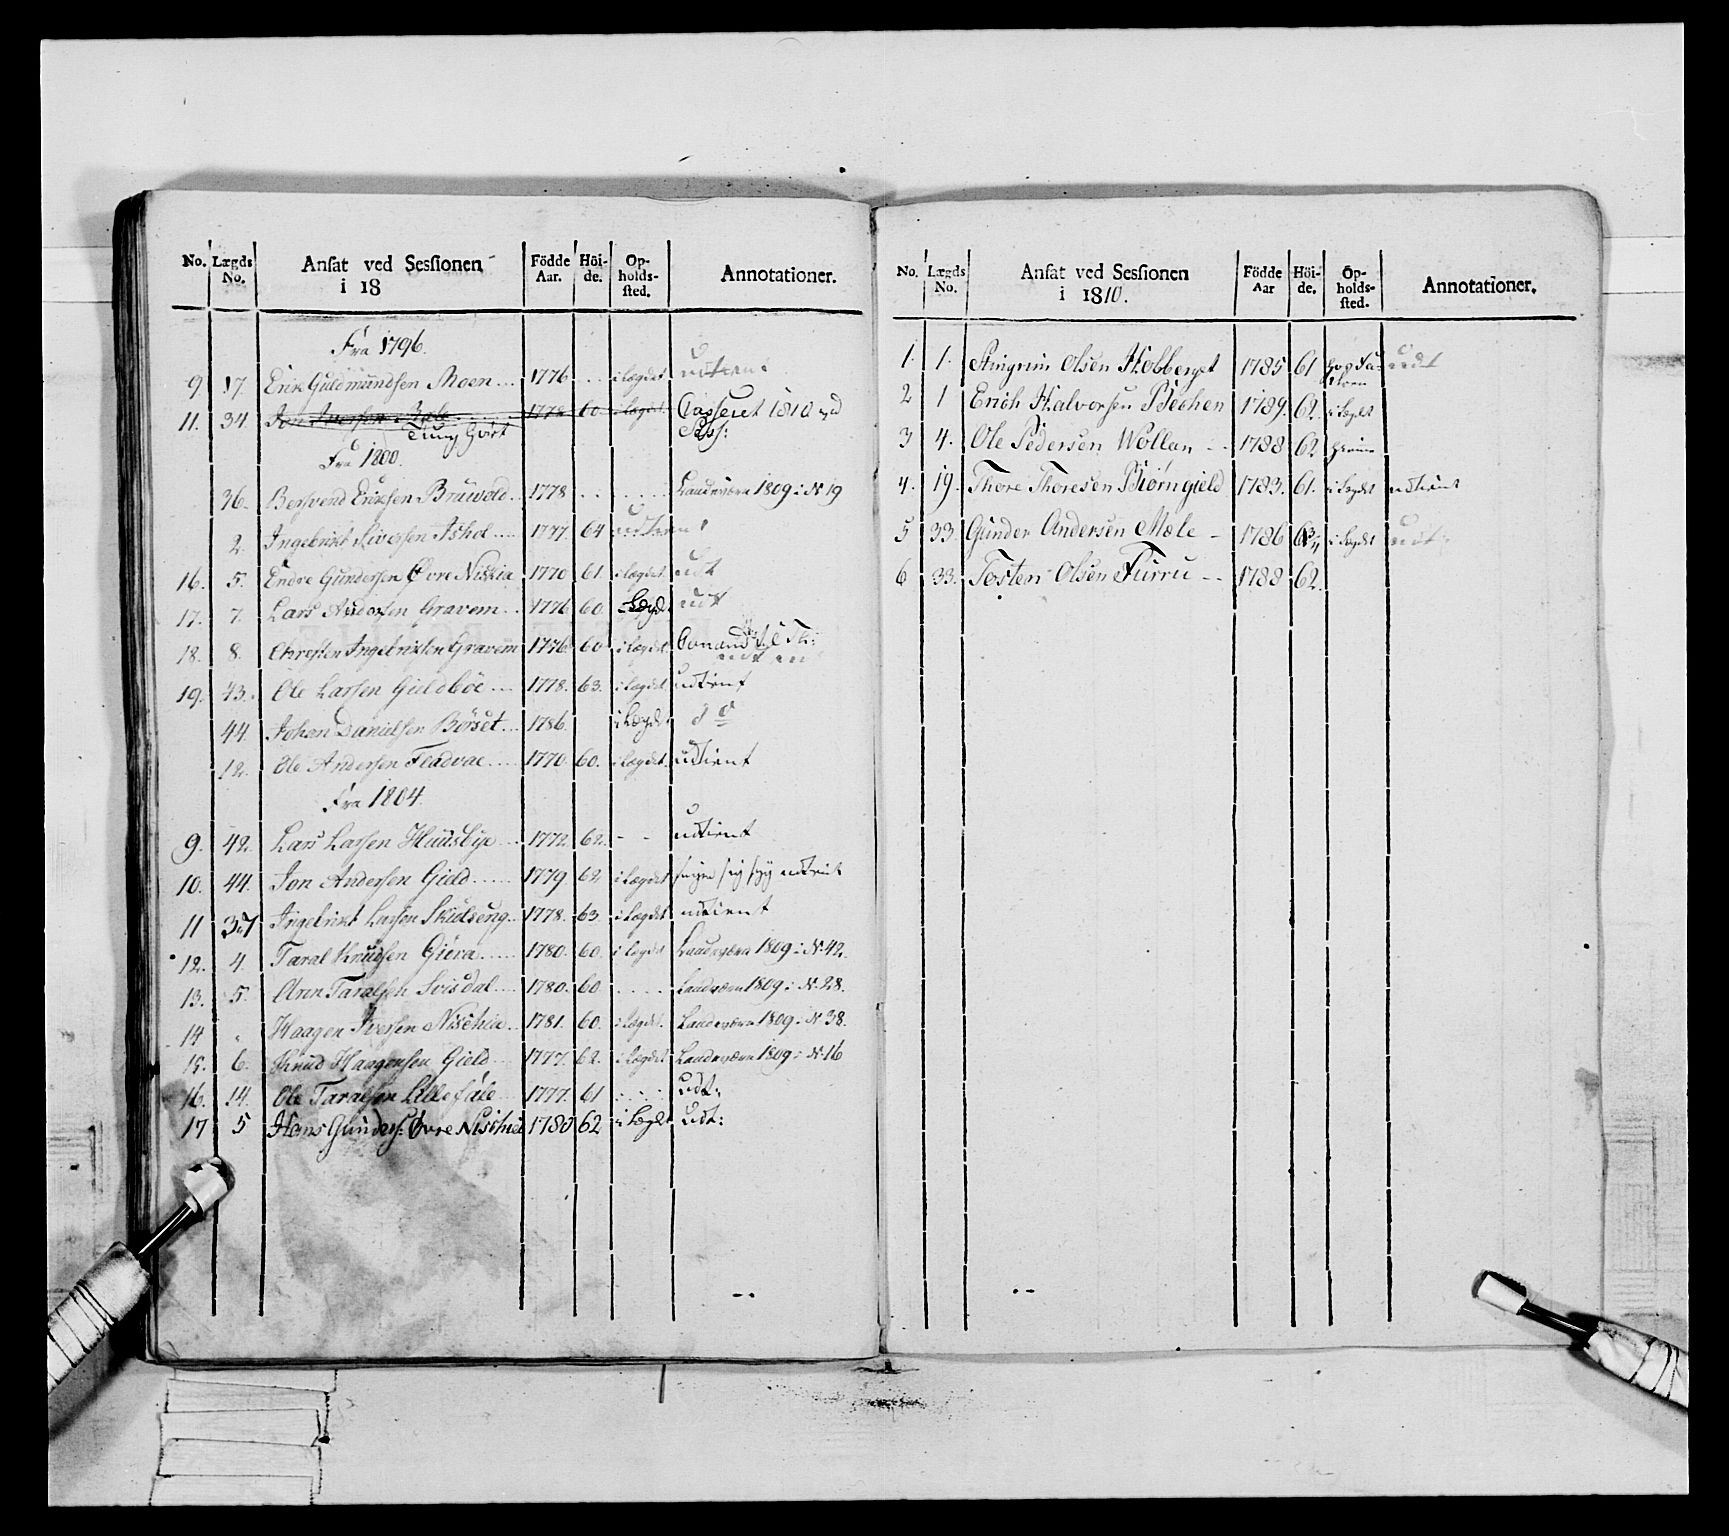 No. Lægds No. Ansat ved Sessionen i 18 Födde Aar. Höi-de. Op-holds-sted. Annotationer.
Fra 1796.
9 17. Erik Guldmundsen Moen 1776 i Lægdet udtient
11. 34. 1778 60 i Lægdet Casseret 1810 ved
Sess:
Fra 1800.
36. Bersvend Eriksen Bruvold 1778 Landeværn 1809 : N 19
2. Ingebrikt Siversen 1777. 64 udtient
16. 5. Endre Gundersen Øvre Nischia 1770 61. i Lægdet udt
17. 7. Lars Andersen Gravem 1776 60 i Lægd. udt
18. 8. Chresten Ingebrixten Gravem 1776 60 i Lægdet
19. 43. Ole Larsen Gieldböe 1778. 63. i Lægdet udtient
44. Johan Danielsen Börset 1786. i Lægd.
12. Ole Andersen Fladvae 1770 60. i Lægdet udtient
Fra 1804.
9. 42. Lars Larsen Huusbye 1772 62. - - udtient
10. 44. Jon Andersen Gield 1779 62 i Lægdet udtient
11 37 Ingebrikt Larsen Skiölseng 1778. 63. i Lægdet udtient
12. 4. Taral Knudsen Giöra 1780. 60. i Lægdet Landeværn 1809 : N. 42.
13. 5. Arn Taralsen Svisdal 1780. 60 Landeværn 1809 : N. 28.
14 " Haagen Iversen Nischia 1781. 60. i Lægdet. Landeværn 1809 : N 38.
15. 6. Knud Haagensen Gield 1777. 62. i Lægdet Landeværn 1809 : N. 16
16. 14. Ole Taralsen Lillefale 1777. 61 Udt:
17 5 Hans Gunders: Øvre Nischia 1780 62 i Lægdt Udt:
No. Lægds No. Ansat ved Sessionen i 1810. Födde Aar Höi-de. Op-holds-sted. Annotationer.
1. 1. Olsen 1785 61 udt
2 1 Erich Halvorsen Bechen 1789. 62. i Lægdt
3 4. Ole Pedersen Wollan 1788 62 hiemme
4. 19. Thore Thoresen Biörngield 1783. 61. i Lægdet udtient
5 33. Gunder Andersen Mæle 1786 i Lægdet udt:
6 33. Tosten Olsen Furru 1788 62.